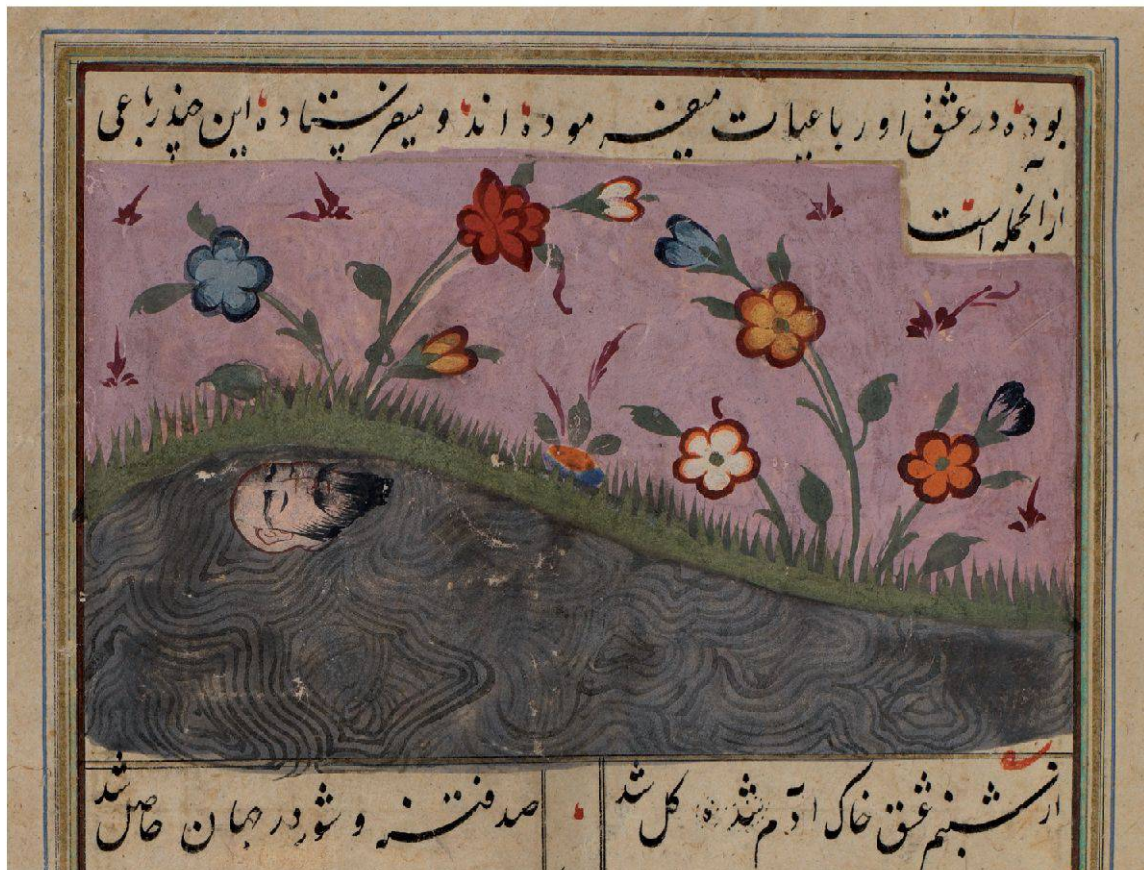 بوده در عشق او رباعیات میفرموده اند و میفرستاده این چند رباعی
از آنجمله است
از شبنم عشق خاک آدم شده گل شد
صد فتنه و شور در جهان حاصل شد